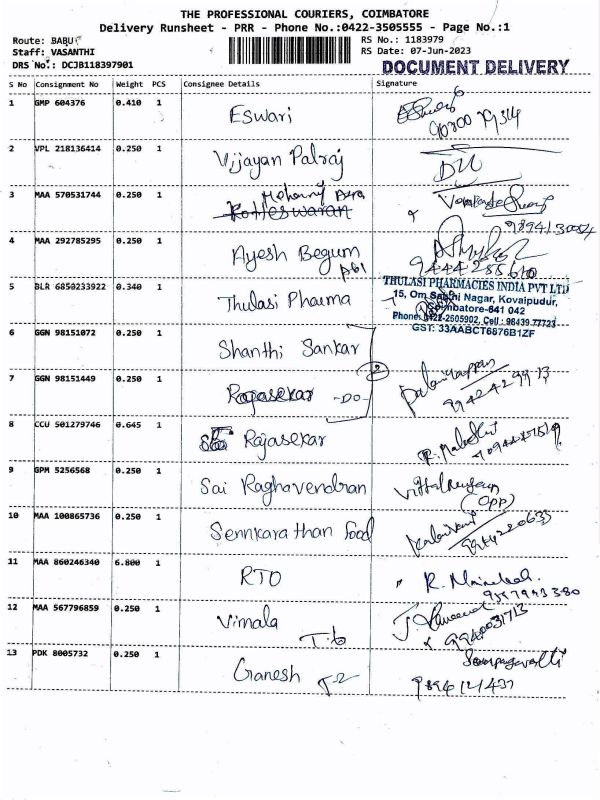 THE PROFESSIONAL COURIERS, COIMBATORE
Delivery Runsheet - PRR - Phone No.:0422-3505555 - Page No.:1
Route: BABU
RS No.: 1183979
Staff: VASANTHI
RS Date: 07-Jun-2023
DRS No.: DCJB118397901
DOCUMENT DELIVERY
S No Consignment No Weight PCS Consignee Details Signature
1 GMP 604376 0.410 1 Eswari
2 VPL 218136414 0.250 1 Vijayan Palraj
3 MAA 570531744 0.250 1
Kotteswaran
9894130054
4 MAA 292785295 0.250 1 Ayesh Begum
9444255610
5 BLR 6850233922 0.340 1 Thulasi Pharma
THULASI PHARMACIES INDIA PVT LTD
15, Om Sakthi Nagar, Kovaipudur,
Coimbatore-641 042
Phone: 0422-2605902, Cell : 98439 77723
GST: 33AABCT6876B1ZF
6 GGN 98151072 0.250 1 Shanthi Sankar
2
7 GGN 98151449 0.250 1 Rajasekar -DO-
9942429913
8 CCU 501279746 0.645 1 Rajasekar
9 GPM 5256568 0.250 1 Sai Raghavendran
(Opp)
10 MAA 100865736 0.250 1 Sennkarathan Food
11 MAA 860246340 6.800 1 RTO
12 MAA 567796859 0.250 1 Vimala
9940031713
13 PDK 8005732 0.250 1 Ganesh
9894121437